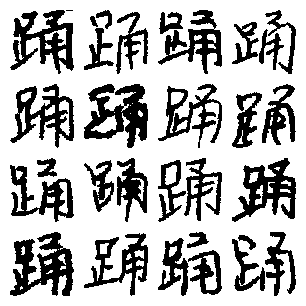 踊踊踊踊
踊踊踊踊
踊踊踊踊
踊踊踊踊